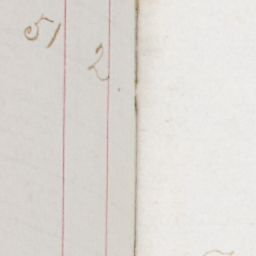 51 2